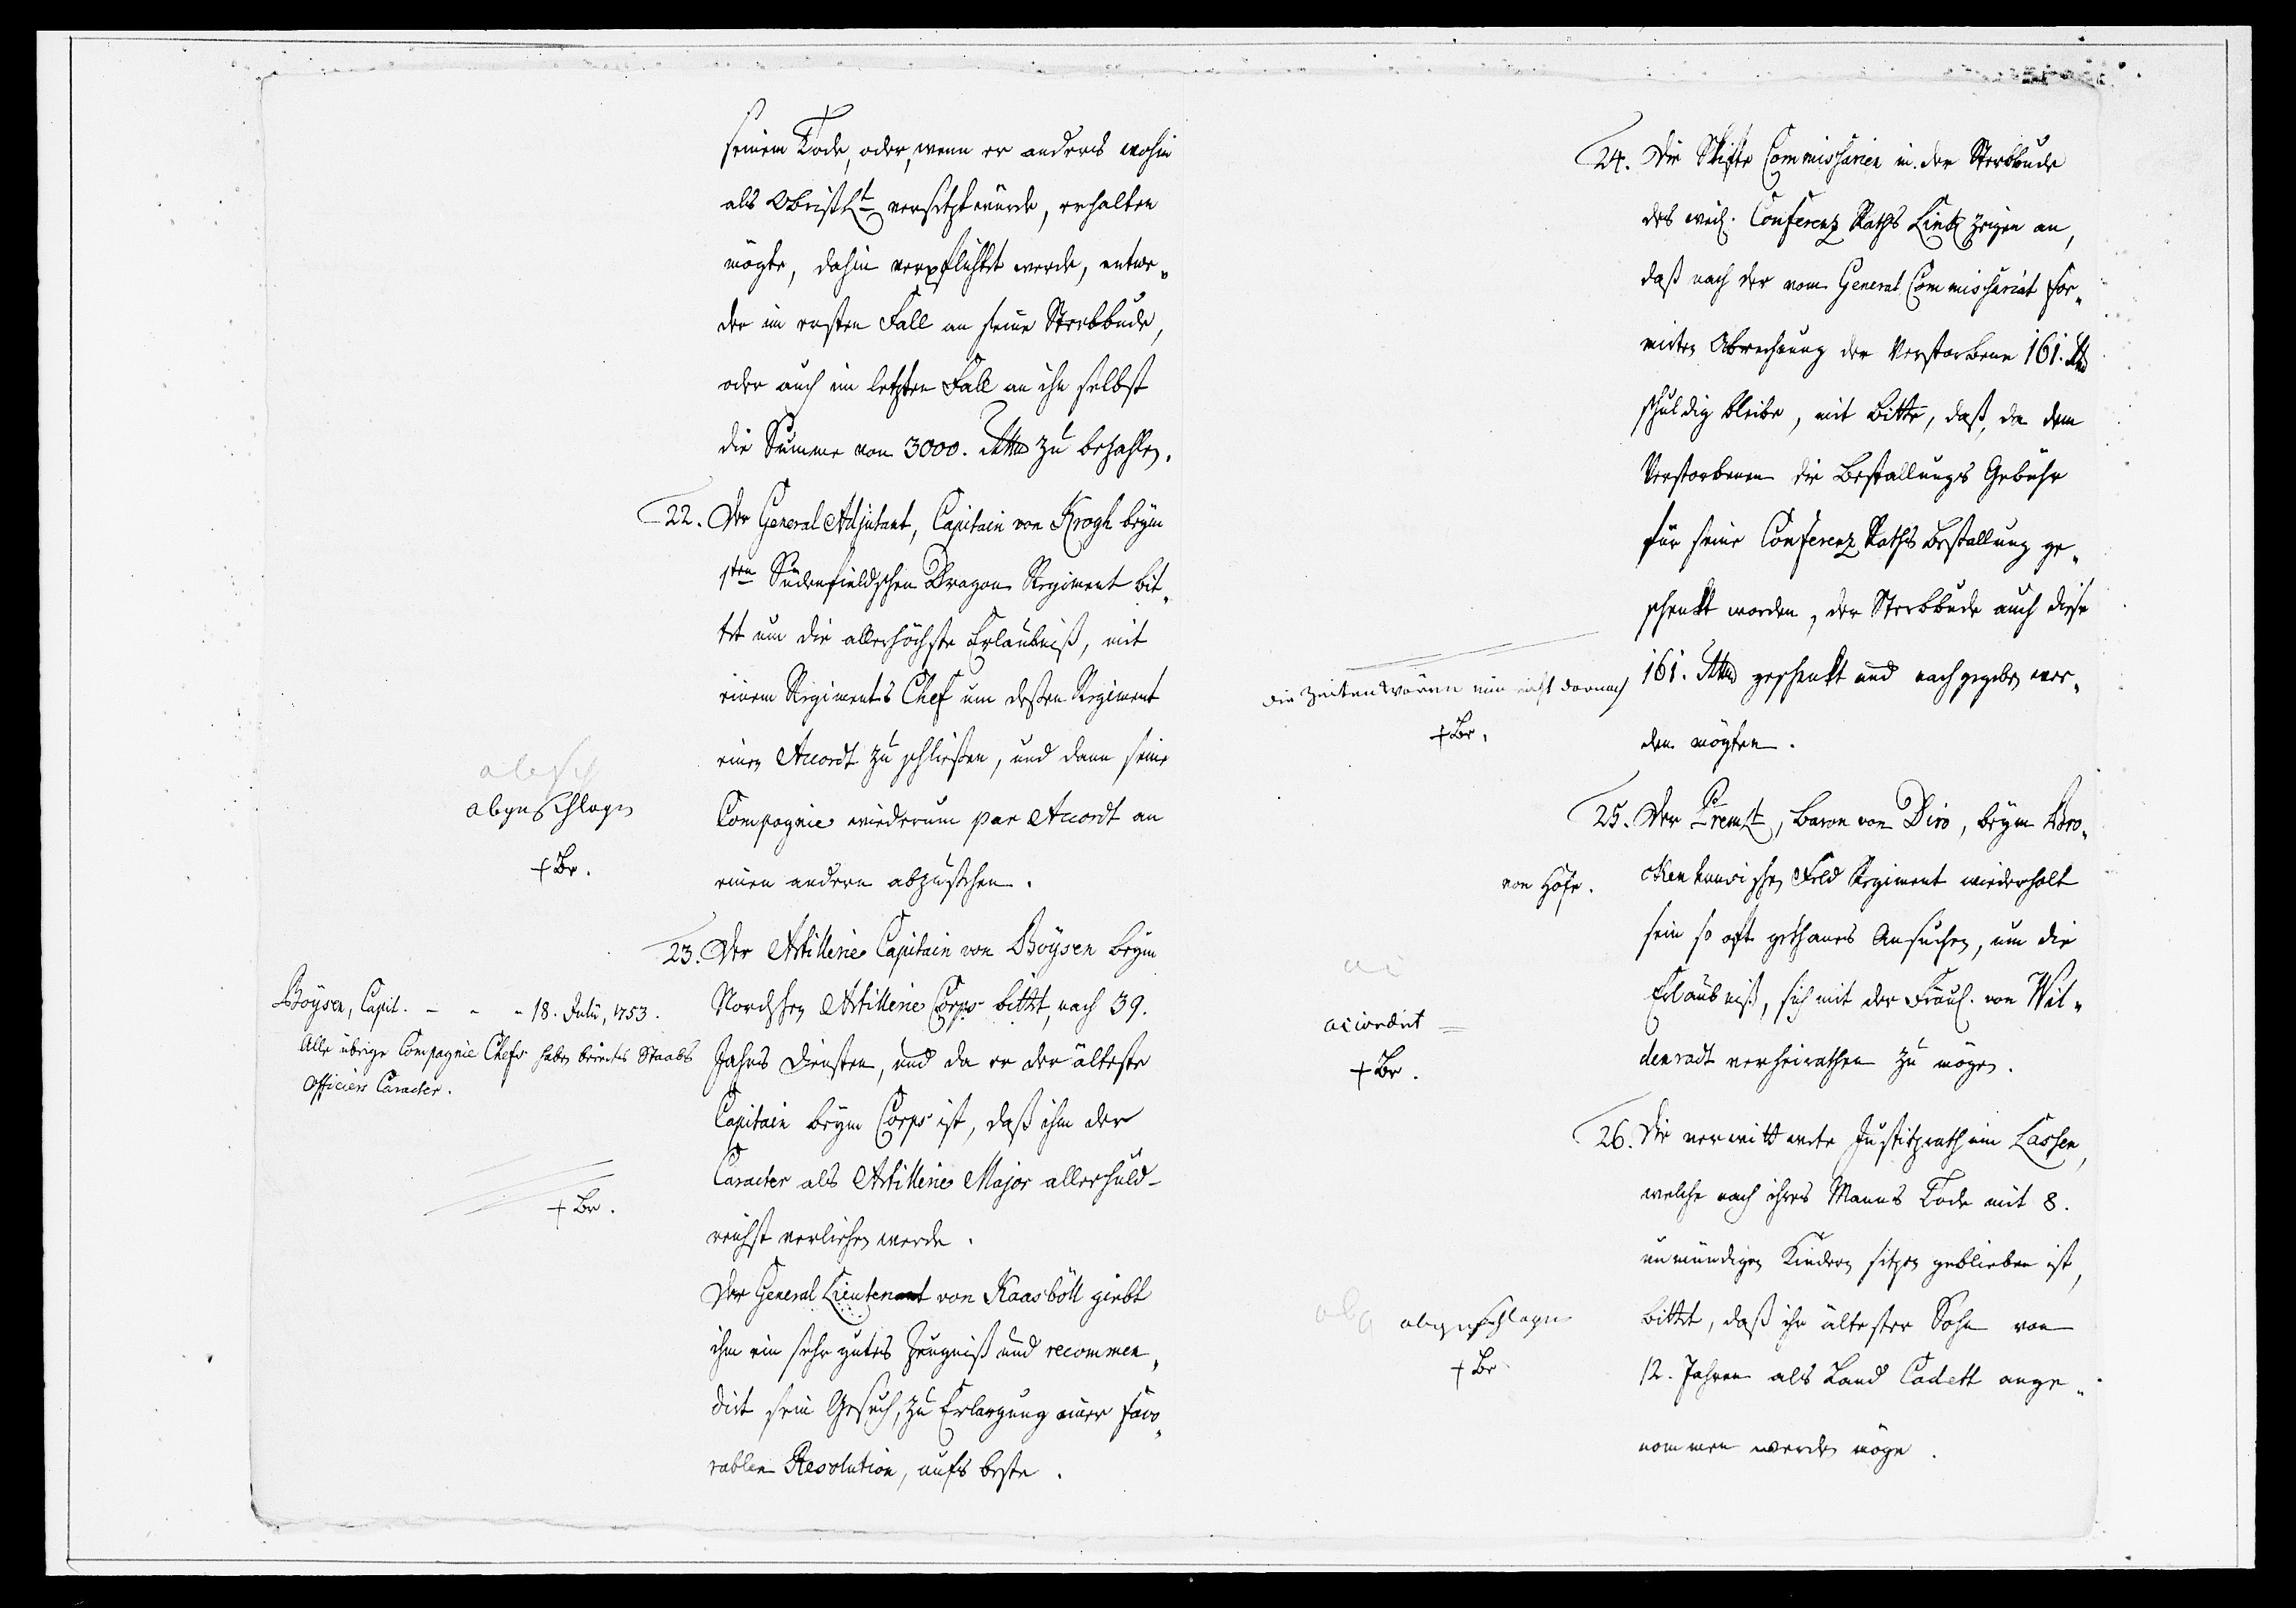 seinem Tode, oder, wenn er anders wohin
als Obristlt versetzt würde, erhalten
mögte, dahin verpflichtet werde, entwe„
der im ersten Fall an seine Sterbbude,
oder auch im letzten Fall an ihn selbst
die Summe von 3000. Rthlr zu bezahlen.
22. Der General Adjutant, Capitain von Krogh beym
1sten Südenfieldschen Dragon Regiment bit„
tet um die allerhöchste Erlaubniß, mit
einem Regiments Chef um deßen Regiment
einen Accordt zu schließen, und dann seine
Compagnie wiederum par Accordt an
einen andern abzustehen.
abgeschlagen
+ Br.
23. Der Artillerie Capitain von Boysen beym
Nordschen Artillerie Corps bittet, nach 39.
Jahres Diensten, und da er der älteste
Capitain beym Corps ist, daß ihm der
Caracter als Artillerie Major allerhuld-
reichst verliehen werde.
Der General Lieutenant von Kaasböll giebt
ihm ein sehr gutes Zeugniß und recommen„
dirt sein Gesuch, zu Erlangung einer favo„
rablen Resolution, aufs beste.
Boysen, Capit. - - - 18. Julii, 1753.
Alle übrige Compagnie Chefs haben bereits Staabs
Officiers Caracter.
+ Br.
24. Die Skifte Commissarien in der Sterbbude
des weil. Conferenz Raths Linck zeigen an,
daß nach der vom General Commissariat for„
mirten Abrechnung der Verstorbene 161. Rthlr
schuldig bleibe, mit Bitte, daß, da dem
Verstorbenen die Bestallungs Gebühr
für seine Conferenz Raths Bestallung ge„
schenkt worden, der Sterbbude auch diese
161. Rthlr geschenkt und nachgegeben wer„
den mögten.
die Zeiten wären nun nicht darnach
+ Br.
25. Der Premlt, Baron von Diro, beym
Feld Regiment wiederholt
sein so oft gethanes Ansuchen, um die
Erlaubniß, sich mit der Fräul. von Wil„
denradt verheirathen zu mögen.
von Hofe.
accordirt =
+ Br.
26. Die verwittwete Justitzräthin Lassen,
welche nach ihres Manns Tode mit 8.
unmündigen Kindern sitzen geblieben ist,
bittet, daß ihr ältester Sohn von
12. Jahren als Land Cadett ange„
nommen werden möge.
abgeschlagen
+ Br